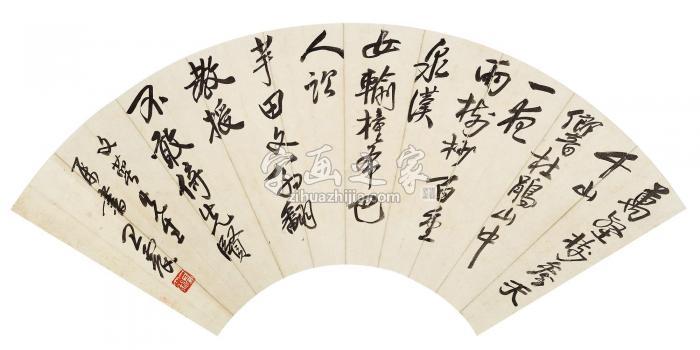 萬壑樹參天
千山
響杜鵑山中
一夜
雨樹杪百重
泉漢
女輸橦布巴
人訟
芋田文翁翻
教授
不敢倚先賢
文 先生
屬書 王
字画之家
zihuazhijia.com